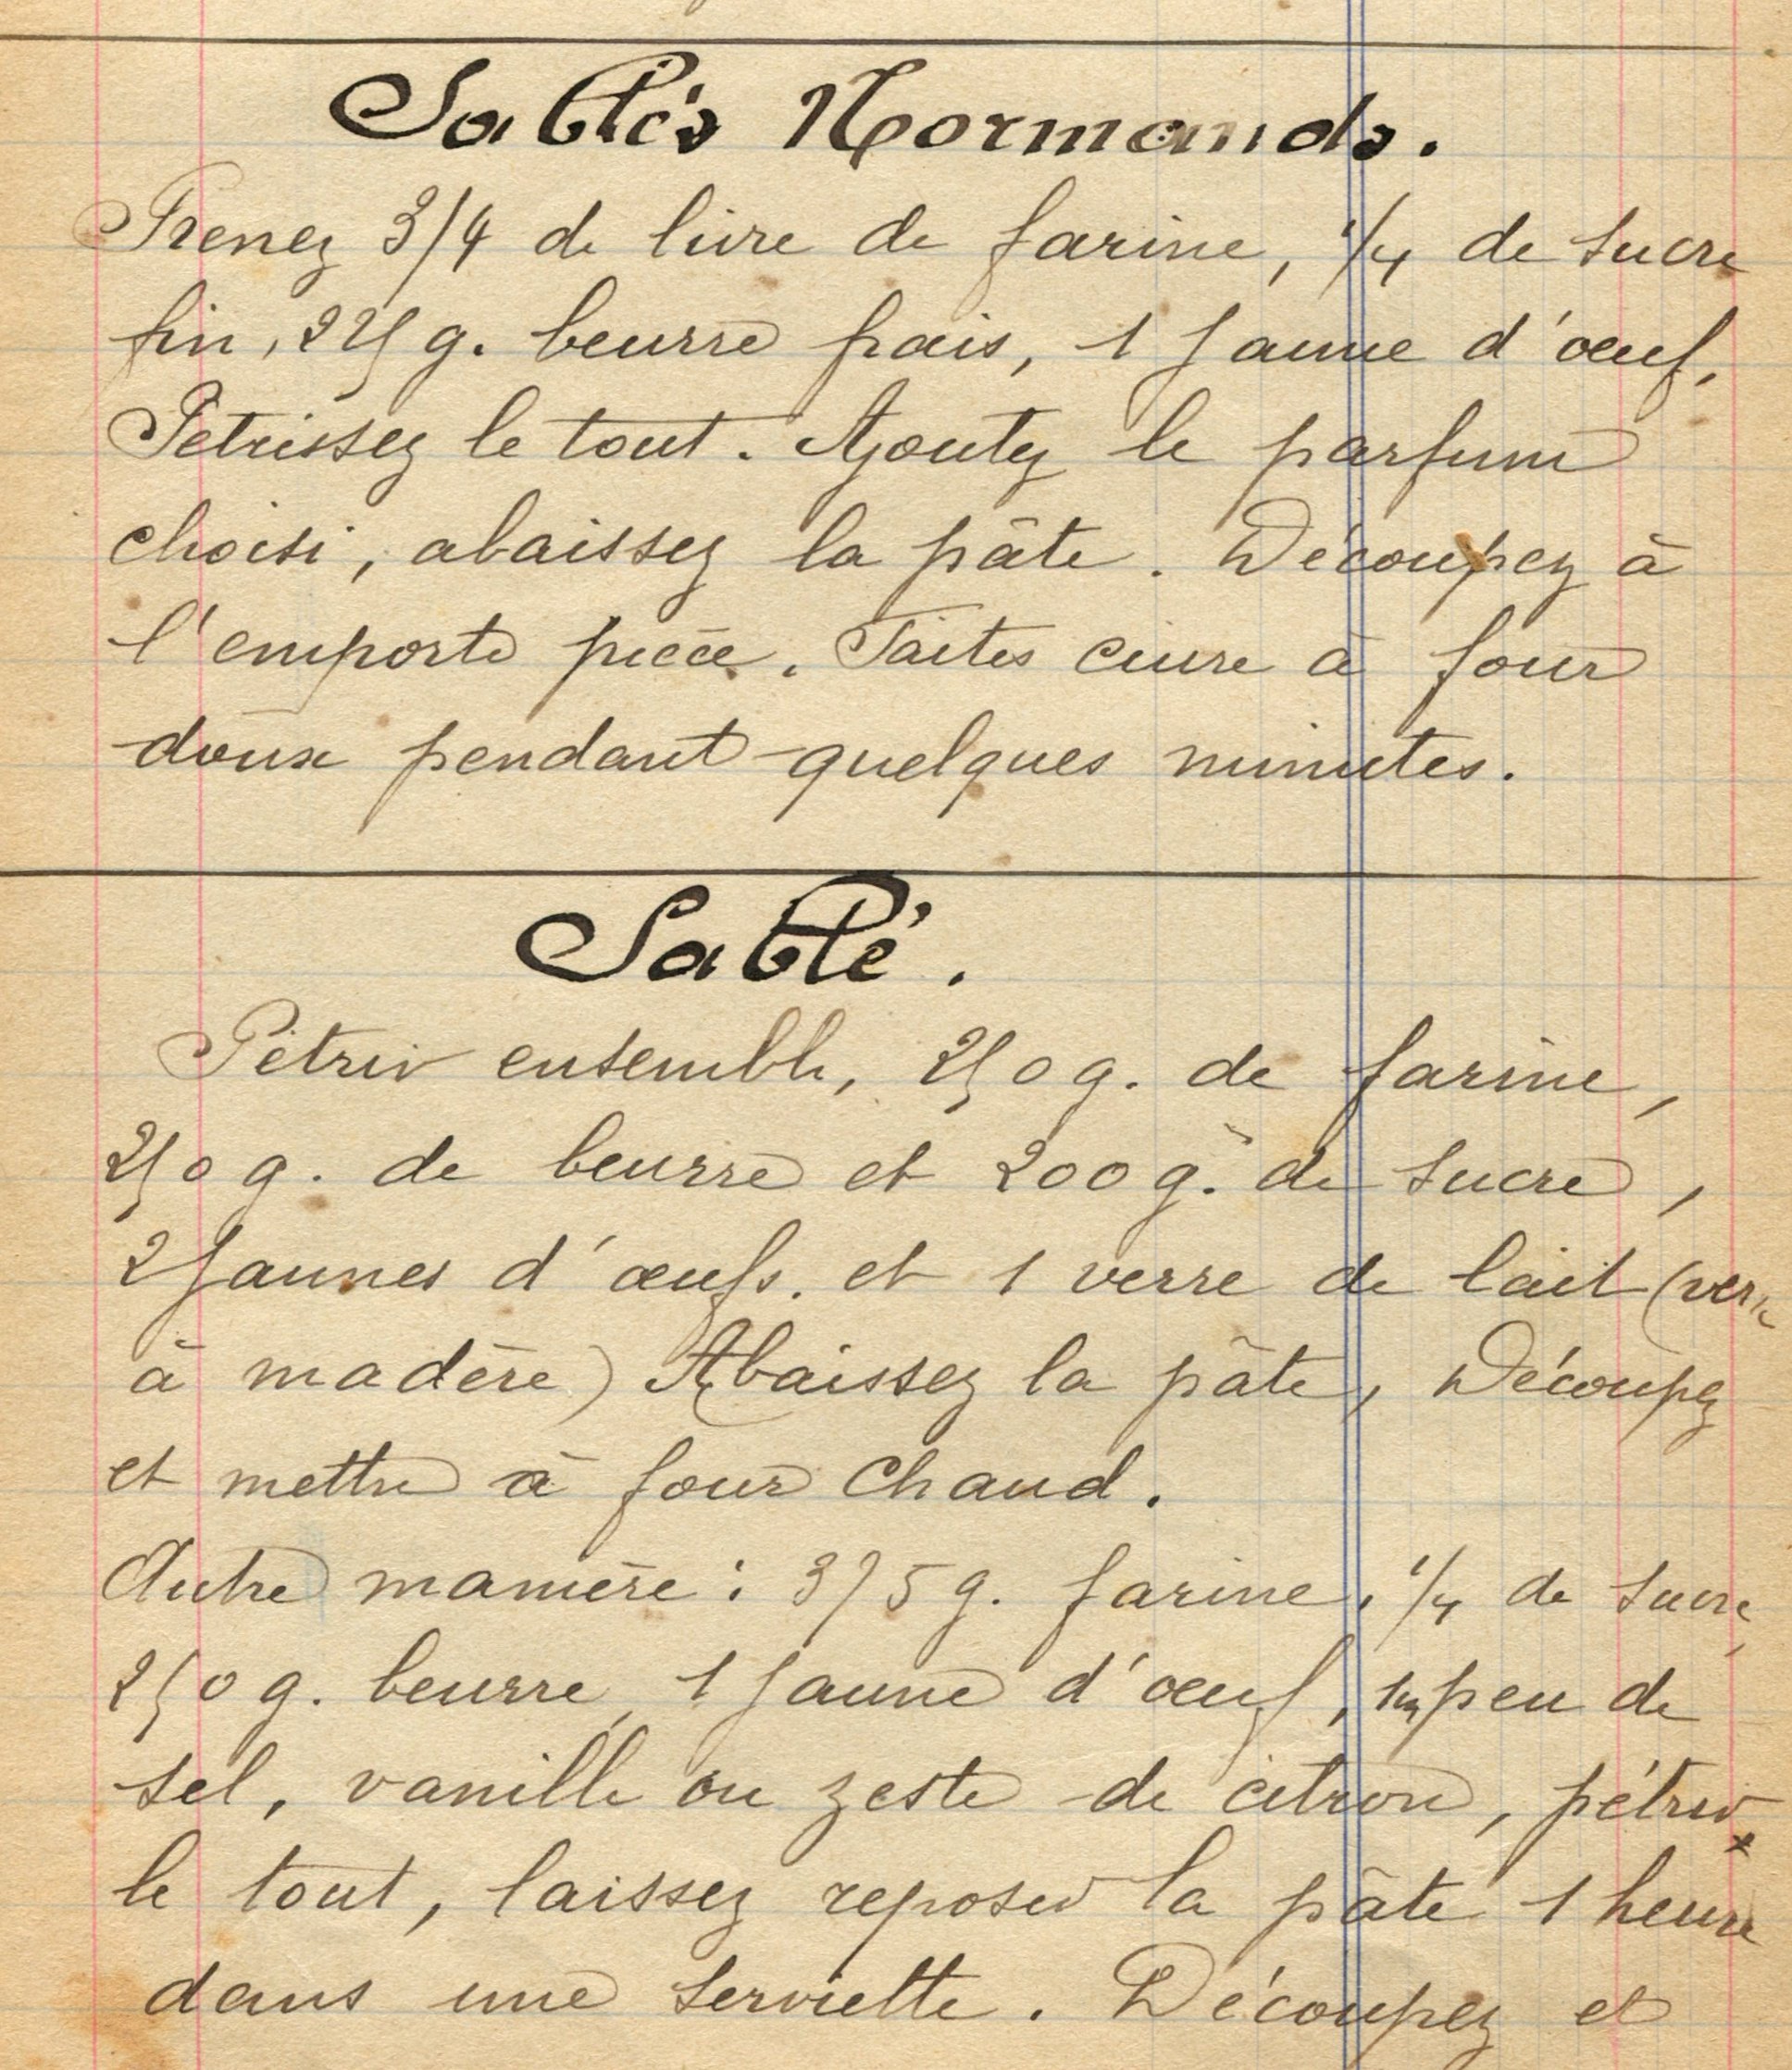 Sablés Normands.
Prenez 3/4 de livre de farine, 1/4 de sucre
fin, 225 g. beurre frais, 1 jaune d'œuf.
Pétrissez le tout. Ajoutez le parfum
choisi, abaissez la pâte. Découpez à
l'emporte pièce. Faites cuire à four
doux pendant quelques minutes.
Sablé.
Pétrir ensemble, 250 g. de farine,
250 g. de beurre et 200 g. de sucre,
2 jaunes d'œufs. et 1 verre de lait (verre
à madère) Abaissez la pâte, Découpez
et mettre à four chaud.
Autre manière : 375 g. farine, 1/4 de sucre,
250 g. beurre, 1 jaune d'œuf, un peu de
sel, vanille ou zeste de citron, pétrir
le tout, laissez reposer la pâte 1 heure
dans une serviette. Découpez et